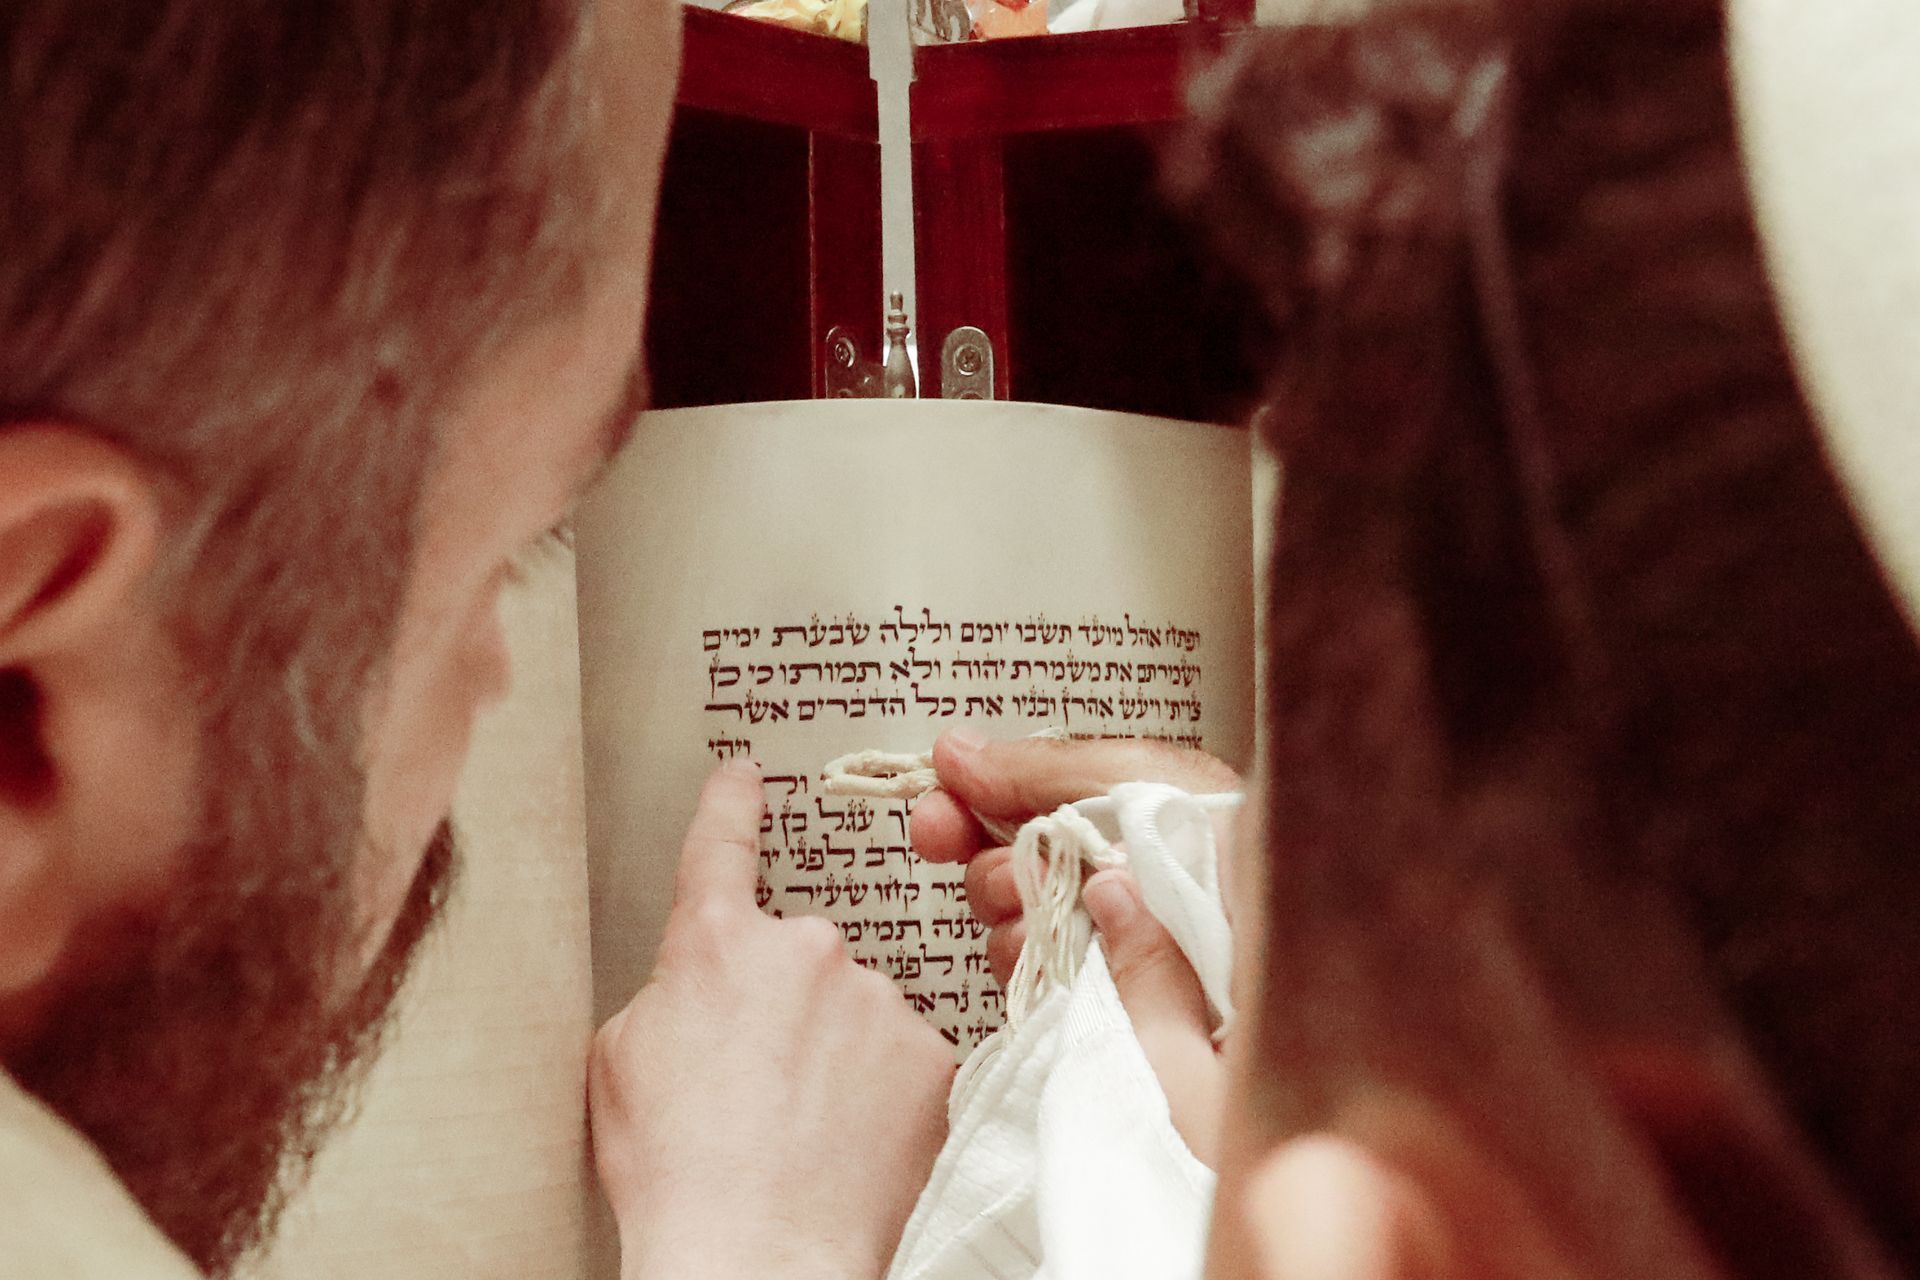 ופתח אהל מועד תשבו יומם ולילה שבעת ימים
ושמרתם את משמרת יהוה ולא תמותו כי כן
צויתי ויעש אהרן ובניו את כל הדברים אשר
ויהי
עגל בן
קרב לפני
קחו שעיר
שנה תמימ
לפני